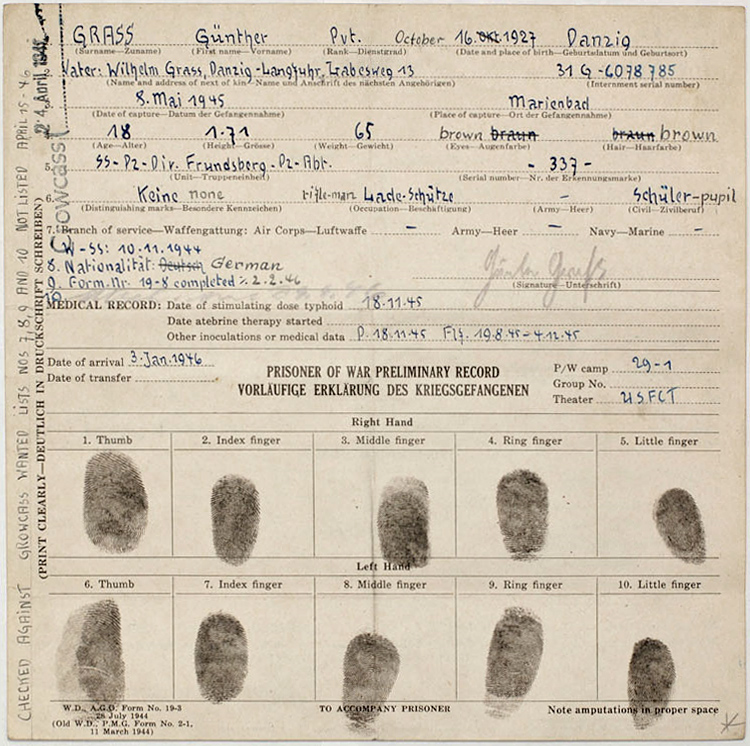 GRASS Günther Pvt. October 16. Okt. 1927 Danzig
(Surname—Zuname) (First name—Vorname) (Rank—Dienstgrad) (Date and place of birth—Geburtsdatum und Geburtsort)
Vater: Wilhelm Grass, Danzig-Langfuhr, Labesweg 13 31 G-6078 785
(Name and address of next of kin—Name und Anschrift des nächsten Angehörigen) (Internment serial number)
8. Mai 1945 Marienbad
(Date of capture—Datum der Gefangennahme) (Place of capture—Ort der Gefangennahme)
18 1.71 65 brown braun braun brown
(Age—Alter) (Height—Grösse) (Weight—Gewicht) (Eyes—Augenfarbe) (Hair—Haarfarbe)
5. SS-Pz-Div. Frundsberg-Pz-Abt. - 337 -
(Unit—Truppeneinheit) (Serial number—Nr. der Erkennungsmarke)
6. Keine none rifle-man Lade-Schütze - Schüler-pupil
(Distinguishing marks—Besondere Kennzeichen) (Occupation—Beschäftigung) (Army—Heer) (Civil—Zivilberuf)
7. Branch of service—Waffengattung: Air Corps—Luftwaffe - Army—Heer - Navy—Marine -
W-SS: 10.11.1944
8. Nationalität: Deutsch German
9. Form.Nr. 19-8 completed 2.2.46
10
Günter Graß
(Signature—Unterschrift)
MEDICAL RECORD: Date of stimulating dose typhoid 18.11.45
Date atebrine therapy started
Other inoculations or medical data P. 18.11.45 Flf. 19.8.45-4.12.45
Date of arrival 3. Jan. 1946
Date of transfer
PRISONER OF WAR PRELIMINARY RECORD
VORLÄUFIGE ERKLÄRUNG DES KRIEGSGEFANGENEN
P/W camp 29-1
Group No.
Theater USFCT
Right Hand
1. Thumb 2. Index finger 3. Middle finger 4. Ring finger 5. Little finger
Left Hand
6. Thumb 7. Index finger 8. Middle finger 9. Ring finger 10. Little finger
W.D., A.G.O. Form No. 19-3
28 July 1944
(Old W.D., P.M.G. Form No. 2-1,
11 March 1944)
TO ACCOMPANY PRISONER
Note amputations in proper space
(PRINT CLEARLY—DEUTLICH IN DRUCKSCHRIFT SCHREIBEN)
CHECKED AGAINST GROWCASS WANTED LISTS NOS 7,8,9 AND 10 NOT LISTED APRIL 15-46
Growcass
24. April 1946